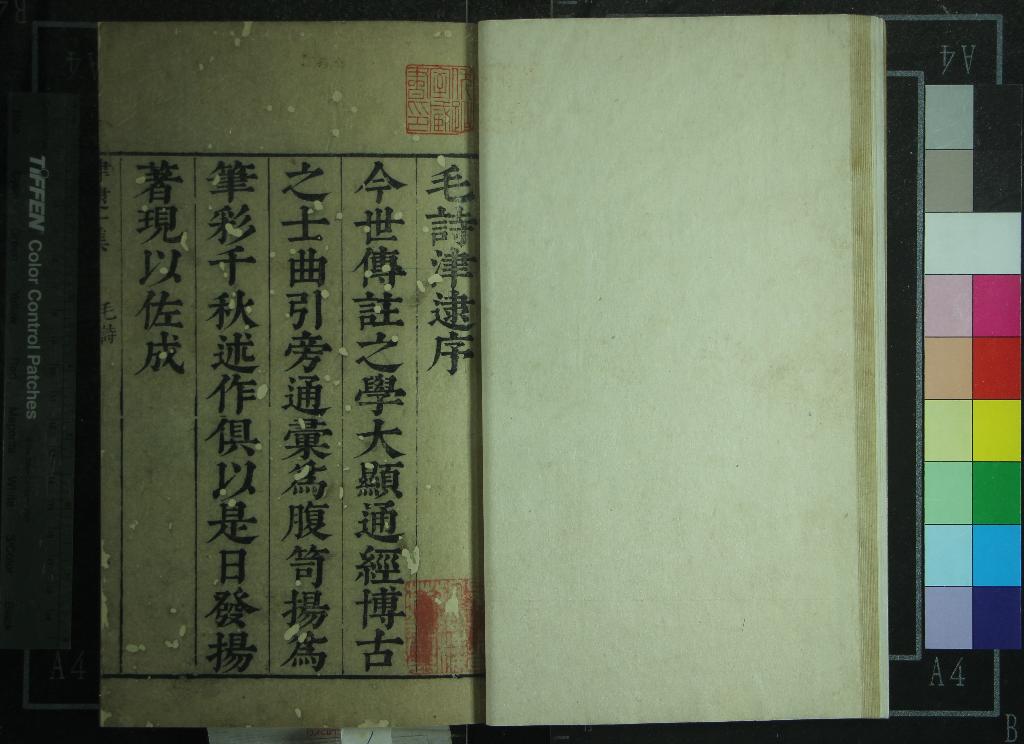 毛詩津逮序
今世傳註之學大顯通經博古
之士曲引旁通彙為腹笥揚為
筆彩千秋述作俱以是日發揚
著現以佐成
毛詩
TIFFEN Color Control Patches
A4
A4
A4
A4
B